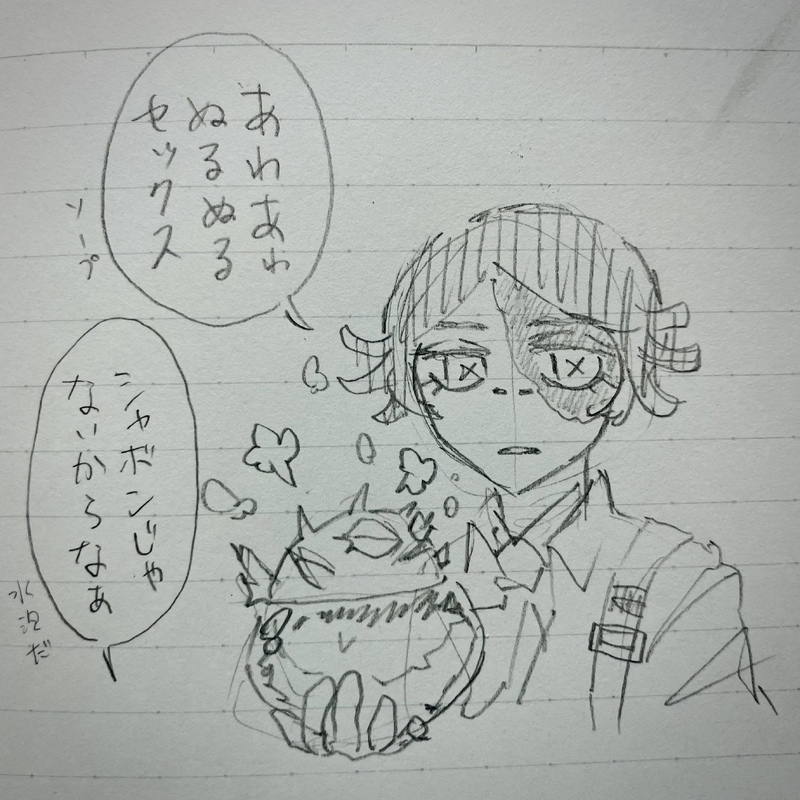 あわあわ
ぬるぬる
セックス
ソープ
シャボンじゃ
ないからなぁ
水泡だ